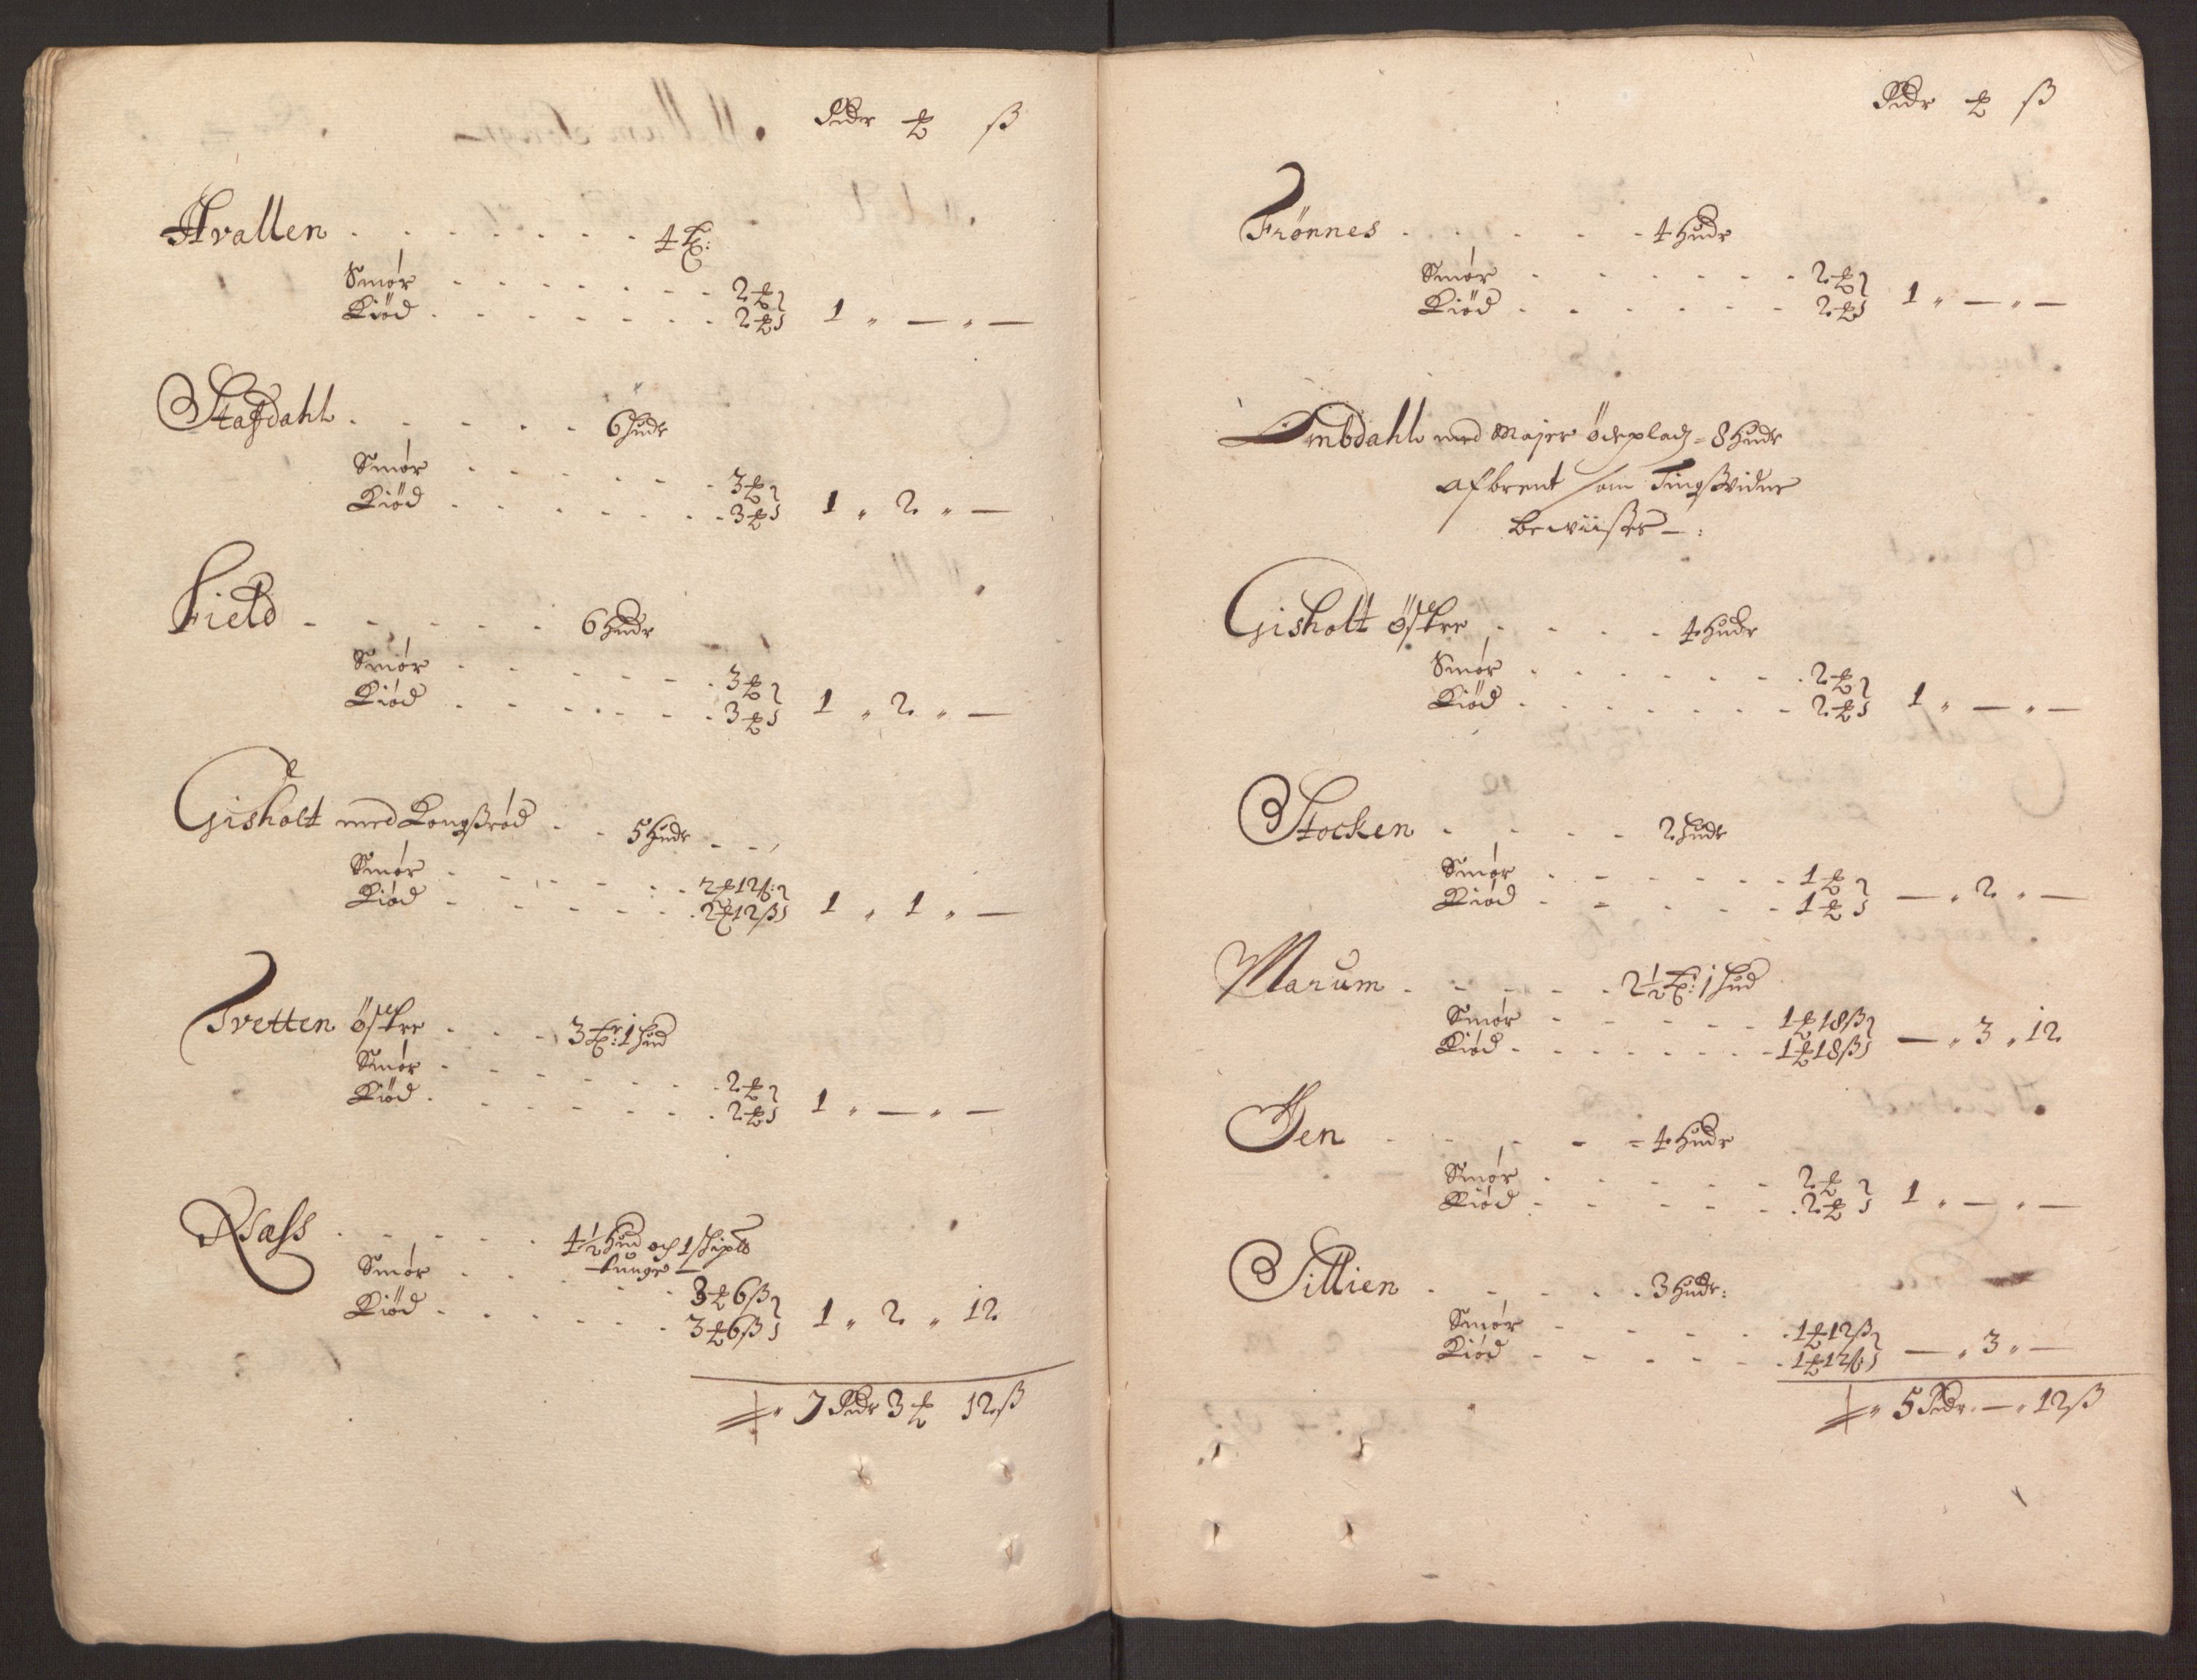 Rdr ℔ ß
Hvallen . . . . . . . 4 tꝫ:
Smør . . . . . . . 2 ℔
Kiød . . . . . . . 2 ℔ 1 „ — „ —
Stafdahl . . . . . 6 hudr
Smør . . . . . . 3 ℔
Kiød . . . . . . . 3 ℔ 1 „ 2 „ —
Field . . . . . 6 hudr
Smør . . . . . . 3 ℔
Kiød . . . . . . . 3 ℔ 1 „ 2 „ —
Gisholt med Kongsrød . . 5 hudr
Smør . . . . . . 2 ℔ 12 ß
Kiød . . . . . . 2 ℔ 12 ß 1 „ 1 „ —
Tvetten østre . . . 3 tꝫ: 1 hud
Smør . . . . . . . 2 ℔
Kiød . . . . . . . 2 ℔ 1 „ — „ —
Aass . . . . . 4½ hud och 1 skipꝭ
tunge
Smør . . . . . 3 ℔ 6 ß
Kiød . . . . . . 3 ℔ 6 ß 1 „ 2 „ 12
„ 7 Rdr 3 ℔ 12 ß
Rdr ℔ ß
Trönnes . . . . . 4 hudr
Smør . . . . . . 2 ℔
Kiød . . . . . . 2 ℔ 1 „ — „ —
Ombdahl med Majer ödeplads = 8 hudr
afbrent som Tingsvidne
bewiisses — :
Gisholt østre . . . . 4 hudr
Smør . . . . . . 2 ℔
Kiød . . . . . . . 2 ℔ 1 „ — „ —
Stocken . . . . 2 hudr
Smør . . . . . . 1 ℔
Kiød . . . . . 1 ℔ — „ 2 „ —
Marum . . . . . 2½ tꝫ: 1 hud
Smør . . . . . 1 ℔ 18 ß
Kiød . . . . . . . 1 ℔ 18 ß — „ 3 „ 12
Jen . . . . = 4 hudr
Smør . . . . . 2 ℔
Kiød . . . . . 2 ℔ 1 „ — „ —
Sillien . . . . . 3 hudr:
Smør . . . . . 1 ℔ 12 ß
Kiød . . . . . 1 ℔ 12 ß — „ 3 „ —
„ 5 Rdr. — „ 12 ß